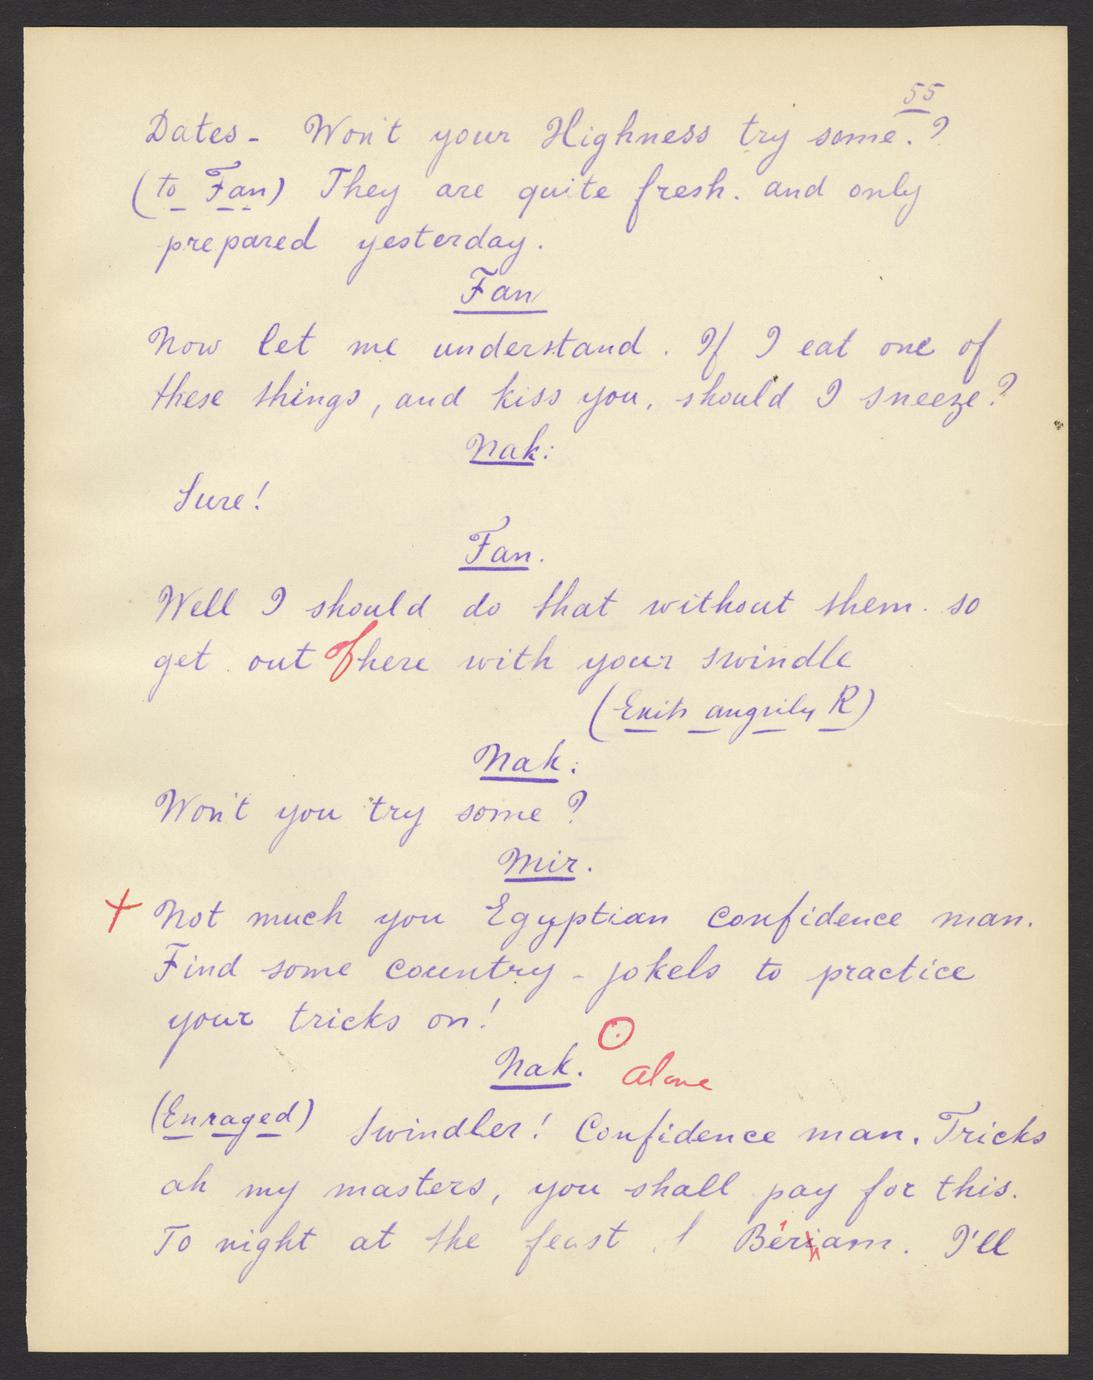 55
Dates - Won't your Highness try some.?
(to Fan) They are quite fresh. and only
prepared yesterday.
Fan
Now let me understand. If I eat one of
these things, and kiss you, should I sneeze?
Nak:
Sure!
Fan.
Well I should do that without them. so
get out of here with your swindle
(Exit angrily R)
Nak:
Won't you try some?
Mir.
+ Not much you Egyptian confidence man.
Find some country-jokels to practice
your tricks on!
Nak. alone
(Enraged) Swindler! Confidence man. Tricks
ah my masters, you shall pay for this.
To night at the feast I'll